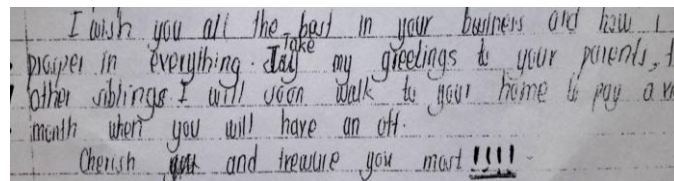 I wish you all the best in your business and how I
prosper in everything. Take my greetings to your parents,
other siblings. I will soon walk to your home to pay a
month when you will have an off.
Cherish you and treasure you most !!!!